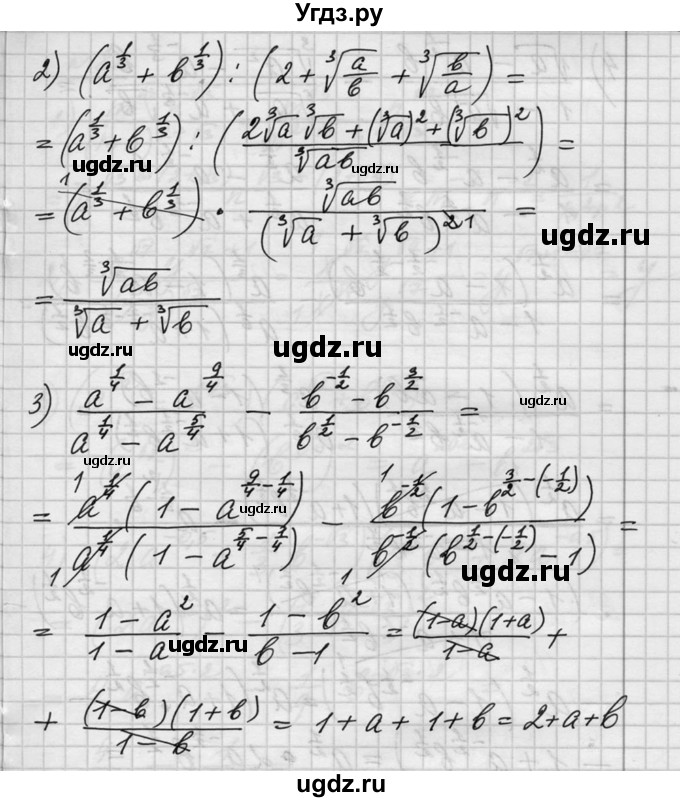 Угдз.ру
2) (a^{1/3} + b^{1/3}) : (2 + ∛(a/b) + ∛(b/a)) =
= (a^{1/3} + b^{1/3}) : ((2∛a ∛b + (∛a)^2 + (∛b)^2)/∛(ab)) =
ugdz.ru ugdz.ru
= (a^{1/3} + b^{1/3})^1 · ∛(ab)/(∛a + ∛b)^{2 1} =
ugdz.ru
= ∛(ab)/(∛a + ∛b)
ugdz.ru ugdz.ru
3) (a^{1/4} − a^{9/4})/(a^{1/4} − a^{5/4}) − (b^{-1/2} − b^{3/2})/(b^{1/2} − b^{-1/2}) =
ugdz.ru
ugdz.ru
= (1 a^{1/4}(1 − a^{9/4 − 1/4}))/(1 a^{1/4}(1 − a^{5/4 − 1/4})) − (1 b^{-1/2}(1 − b^{3/2 − (−1/2)}))/(1 b^{-1/2}(b^{1/2 − (−1/2)} − 1)) =
ugdz.ru
ugdz.ru
= (1 − a^2)/(1 − a) − (1 − b^2)/(b − 1) = ((1−a)(1+a))/(1−a) +
ugdz.ru
+ ((1−b)(1+b))/(1−b) = 1 + a + 1 + b = 2 + a + b
ugdz.ru ugdz.ru
ugdz.ru